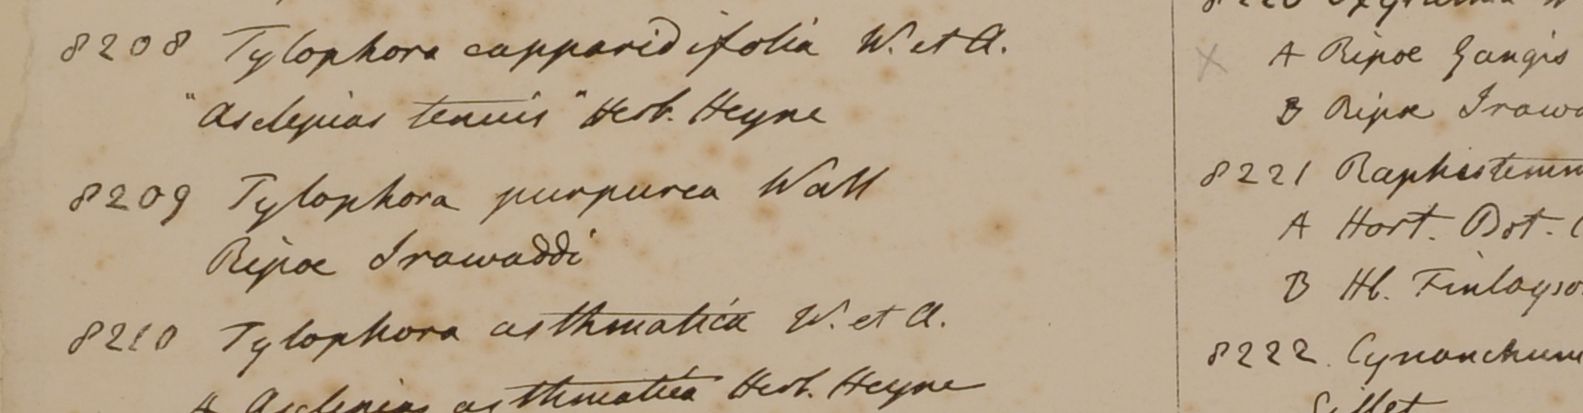 8208 Tylophora capparidifolia W. et A.
"Asclepias tenuis" Herb. Heyne
8209 Tylophora purpurea Wall
Ripae Irawaddi
8210 Tylophora asthmatica W. et A.
A Asclepias asthmatica Herb. Heyne
8220
A Ripae Gangis
B Ripae
8221
A Hort. Bot.
B Hb.
8222